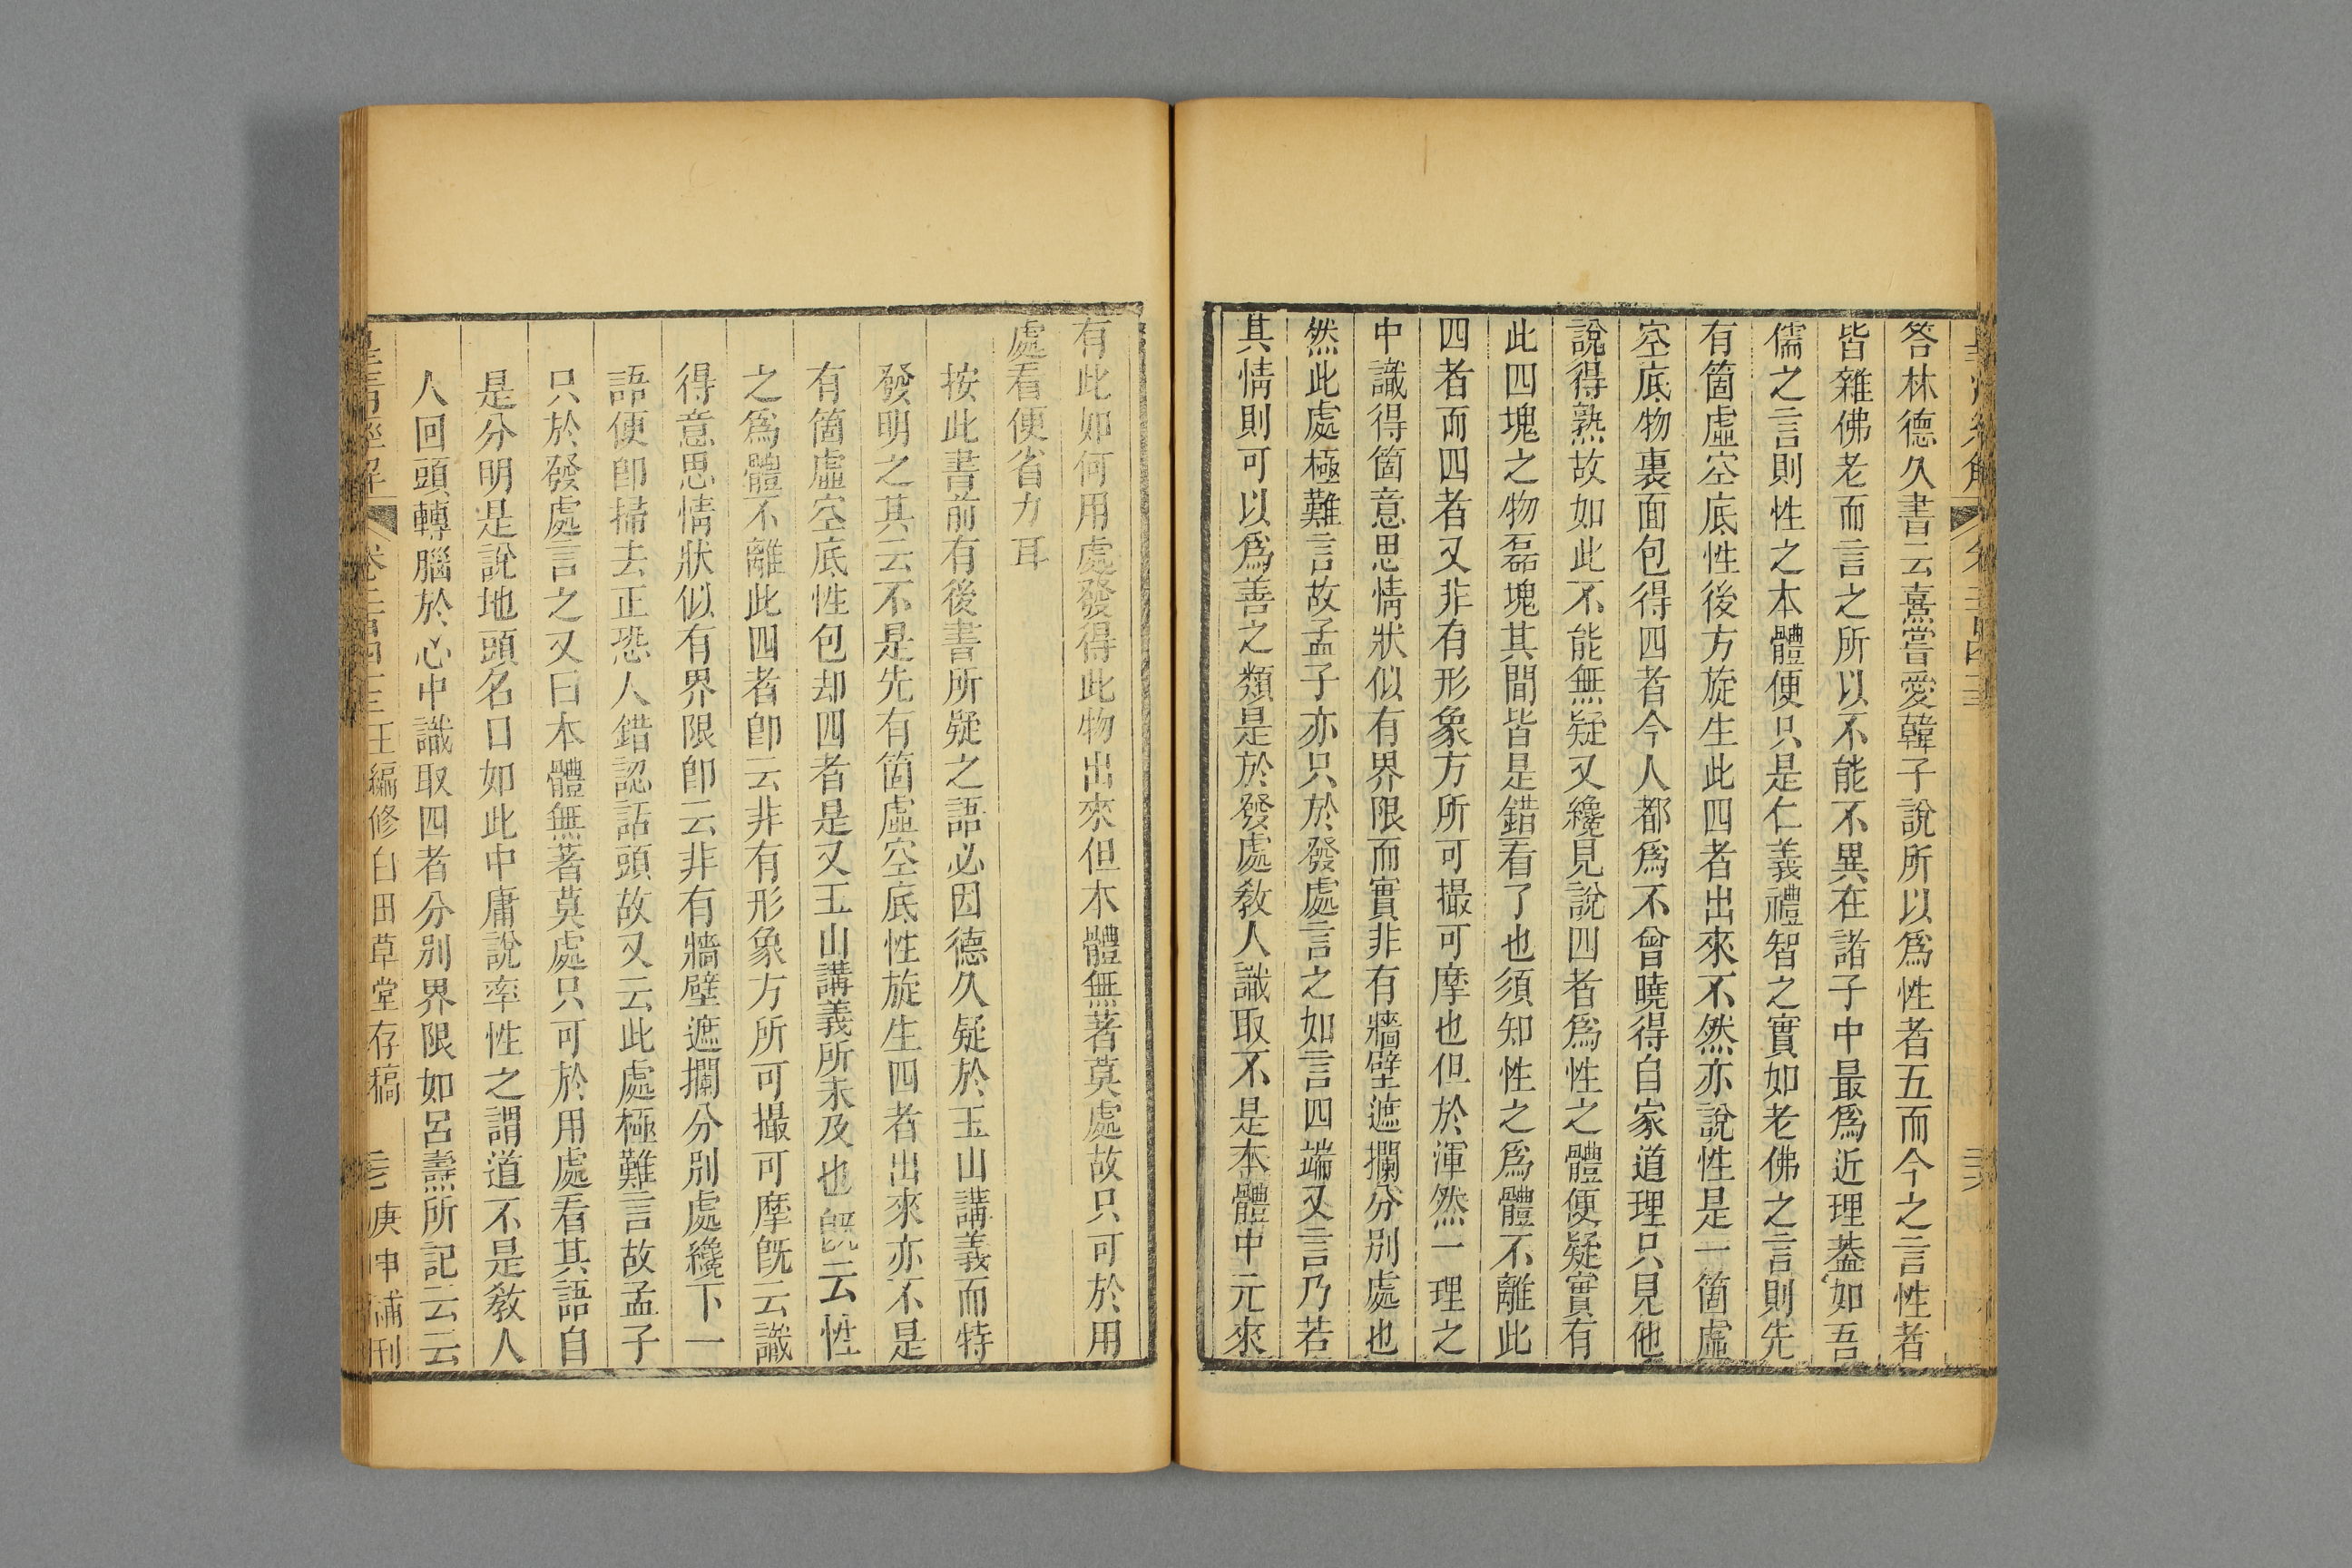 答林德久書云熹嘗愛韓子說所以爲性者五而今之言性者
皆雜佛老而言之所以不能不異在諸子中最爲近理葢如吾
儒之言則性之本體便只是仁義禮智之實如老佛之言則先
有箇虛空底性後方旋生此四者出來不然亦說性是一箇虛
空底物裏面包得四者今人都爲不曾曉得自家道理只見他
說得熟故如此不能無疑又纔見說四者爲性之體便疑實有
此四塊之物磊塊其間皆是錯看了也須知性之爲體不離此
四者而四者又非有形象方所可撮可摩也但於渾然一理之
中識得箇意思情狀似有界限而實非有牆壁遮攔分別處也
然此處極難言故孟子亦只於發處言之如言四端又言乃若
其情則可以爲善之類是於發處敎人識取不是本體中元來
有此如何用處發得此物出來但本體無著莫處故只可於用
處看便省力耳
按此書前有後書所疑之語必因德久疑於玉山講義而特
發明之其云不是先有箇虛空底性旋生四者出來亦不是
有箇虛空底性包却四者是又玉山講義所未及也旣云性
之爲體不離此四者卽云非有形象方所可撮可摩旣云識
得意思情狀似有界限卽云非有牆壁遮攔分別處纔下一
語便卽掃去正恐人錯認話頭故又云此處極難言故孟子
只於發處言之又曰本體無著莫處只可於用處看其語自
是分明是說地頭名口如此中庸說率性之謂道不是敎人
人回頭轉腦於心中識取四者分別界限如呂燾所記云云
皇清經解 卷二百四十三 王編修白田草堂存稿 庚申補刊